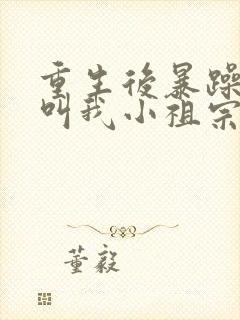 重生後暴躁
叫我小祖宗
董毅